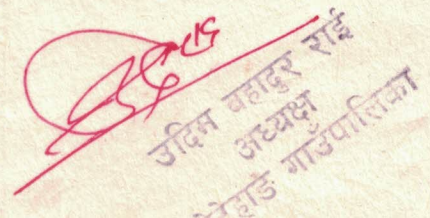 उदिम बहादुर राई
अध्यक्ष
गाउँपालिका